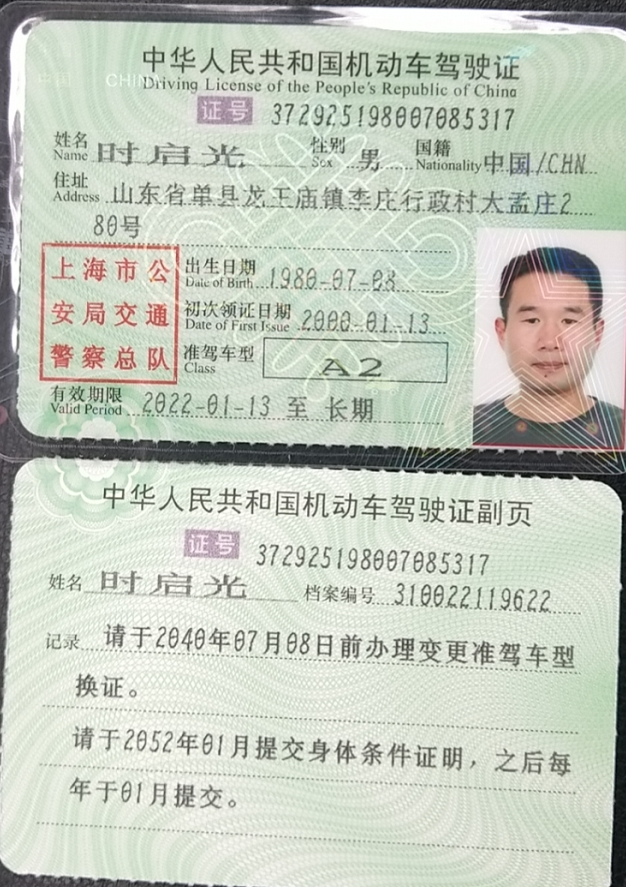 中国 CHINA
中华人民共和国机动车驾驶证
Driving License of the People's Republic of China
证号 372925198007085317
姓名 Name 时启光 性别 Sex 男 国籍 Nationality 中国/CHN
住址 Address 山东省单县龙王庙镇李庄行政村大孟庄2
80号
上海市公
安局交通
警察总队
出生日期 Date of Birth 1980-07-08
初次领证日期 Date of First Issue 2000-01-13
准驾车型 Class A2
有效期限 Valid Period 2022-01-13 至 长期
中华人民共和国机动车驾驶证副页
证号 372925198007085317
姓名 时启光 档案编号 310022119622
记录 请于2040年07月08日前办理变更准驾车型
换证。
请于2052年01月提交身体条件证明，之后每
年于01月提交。